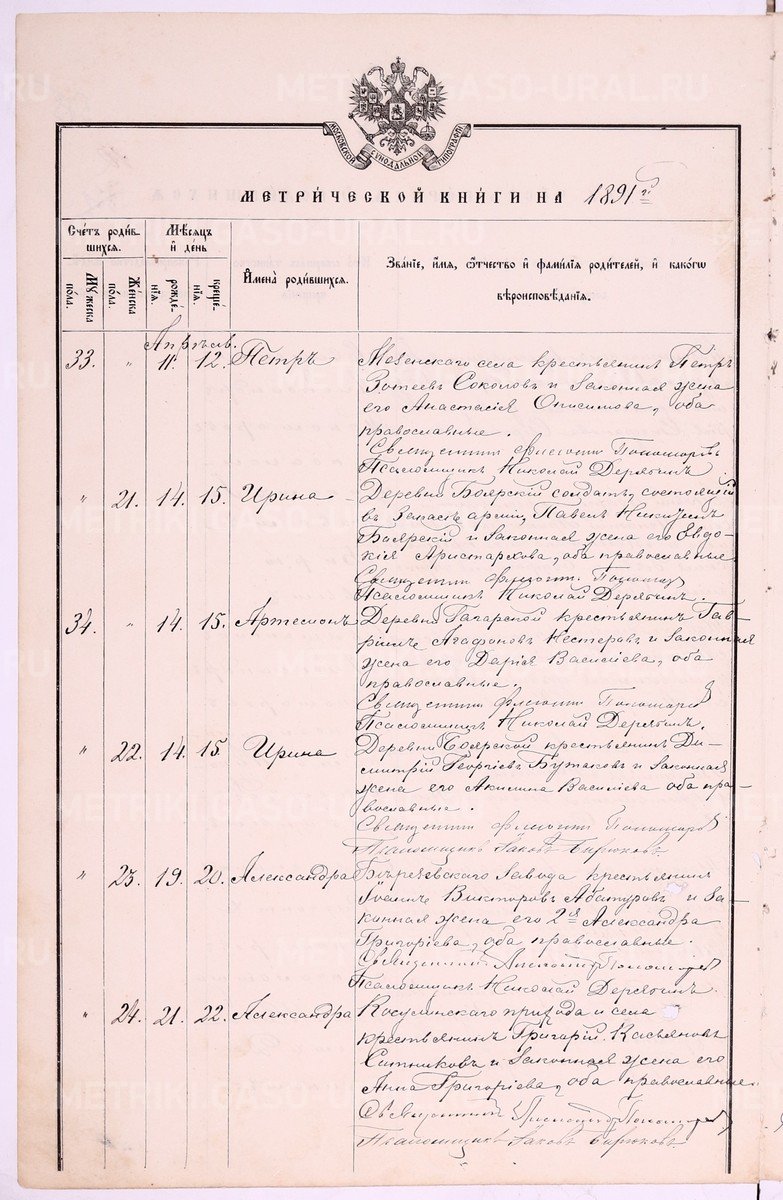 МОСКОВСКОЙ СУНОДАЛЬНОЙ ТИПОГРАФІИ
МЕТРИЧЕСКОЙ КНИГИ НА 1891 й
Счетъ родив-
шихся.
Мѣсяцъ
и день
Мужеска
пола.
Женска
пола.
рожде-
нія.
креще-
нія.
Имена родившихся.
Званіе, имя, отчество и фамилія родителей, и какогω
вѣроисповѣданія.
Апрѣль.
33. " 11. 12. Петръ
Мезенскаго села крестьянинъ Петръ
Зотеевъ Соколовъ и законная жена
его Анастасія Онисимова, оба
православные.
Священникъ Пономаревъ
Псаломщикъ Николай Дерябинъ
" 21. 14. 15. Ирина
Деревни Боярской солдатъ, состоящій
въ запасѣ арміи, Павелъ Никитинъ
Боярскій и законная жена его Евдо-
кія Аристархова, оба православные
Священникъ
Псаломщикъ Николай Дерябинъ.
34. " 14. 15. Артемонъ
Деревни Гагарской крестьянинъ Гав-
ріилъ Агафоновъ Нестеровъ и законная
жена его Дарія Василіева, оба
православные.
Священникъ Пономаревъ
Псаломщикъ Николай Дерябинъ.
" 22. 14. 15. Ирина
Деревни Боярской крестьянинъ Ди-
митрій Георгіевъ Бутаковъ и законная
жена его Акилина Василіева оба пра-
вославные.
Священникъ Пономаревъ
Псаломщикъ Іаковъ Бирюковъ.
" 23. 19. 20. Александра
завода крестьянинъ
Іоаннъ Викторовъ Абатуровъ и за-
конная жена его 2я Александра
Григоріева, оба православные.
Священникъ Пономаревъ
Псаломщикъ Николай Дерябинъ.
" 24. 21. 22. Александра
Косулинскаго прихода и села
крестьянинъ Григорій Касьяновъ
Ситниковъ и законная жена его
Анна Григоріева, оба православные
Священникъ Пономаревъ
Псаломщикъ Іаковъ Бирюковъ.